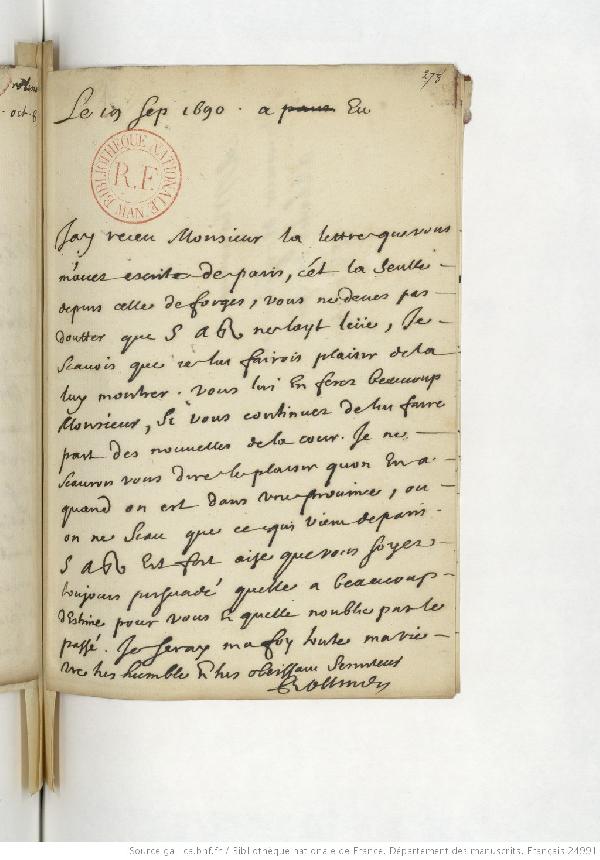 273
Le 19 Sep 1690 . a paris Eu
BIBLIOTHEQUE NATIONALE
R.F.
MAN
Jay receu Monsieur la lettre que vous
m'auez escritte de paris, c'ét la Seulle
depuis celle de forges, vous ne deues pas
doutter que S A R ne layt leüe, Je
Scauois que ie lui fairois plaisir de la
luy montrer . vous lui En feres beaucoup
Monsieur, Si vous continues de lui faire
part des nouuelles de la cour . Je ne
Scaurois vous dire le plaisir quon En a
quand on est dans vne prouince, ou
on ne Scau que ce qui vient de paris .
S A R Est fort aise que vous Soyes
toujours persuadé quelle a beaucoup
d'Estime pour vous Et quelle n'oublie pas le
passé . Je Seray ma foy toute ma vie
vre tres humble Et tres obeissant Seruiteur
oct. 8
Source gallica.bnf.fr / Bibliothèque nationale de France. Département des manuscrits. Français 24991